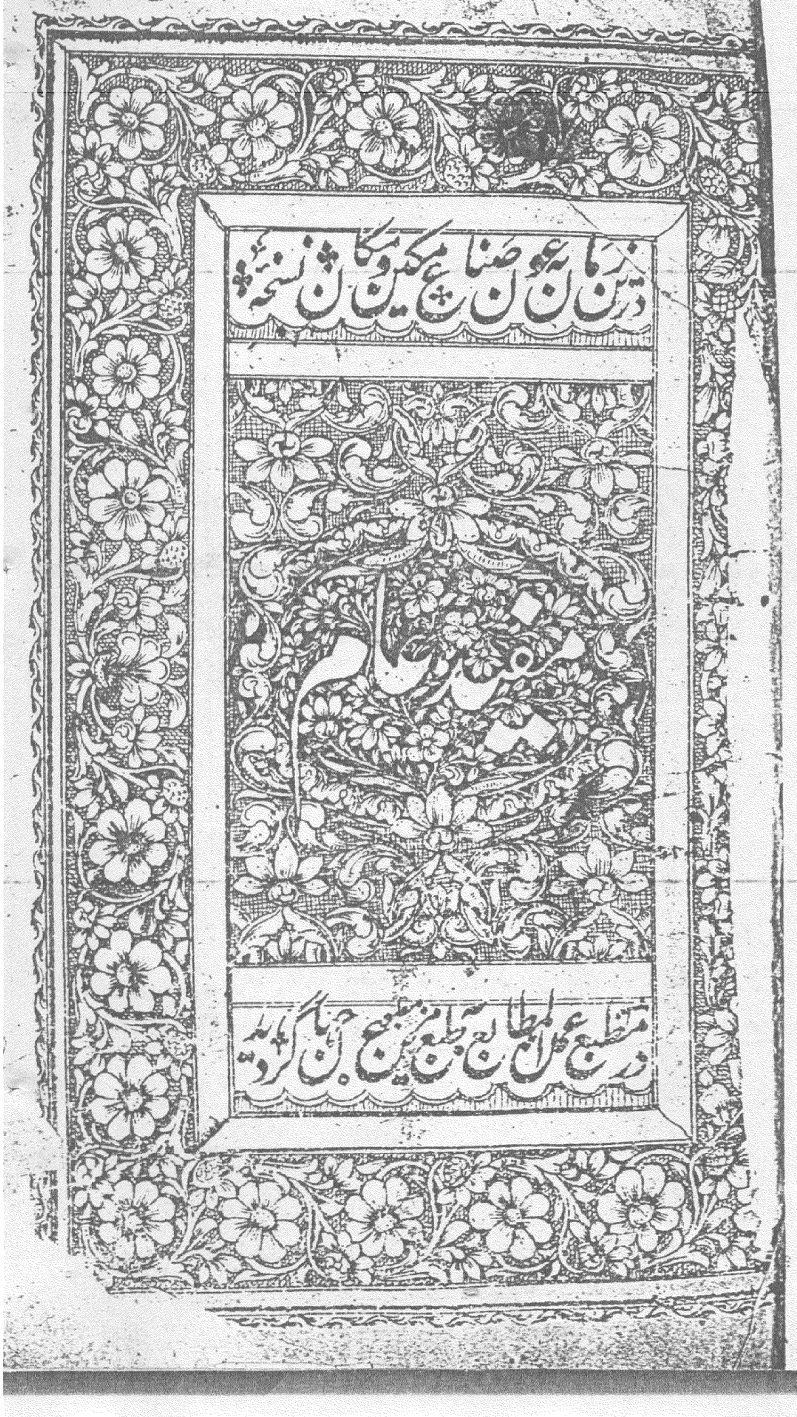 درین زمان بعون صناع مکین و مکان نسخه
مفید عام
در مطبع عمدة المطابع بطبع مزین مطبوع جهان گردید